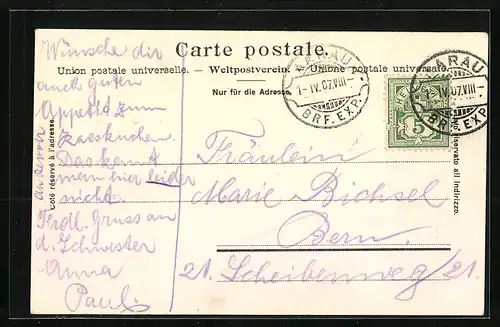 Carte postale.
Union postale universelle. – Weltpostverein. – Unione postale universale.
Nur für die Adresse.
Côté réservé à l'adresse.
riservato all' indirizzo.
AARAU
1-IV.07.VIII-
BRF. EXP.
AARAU
IV.07.VIII-
BRF. EXP.
5
Wünsche dir
auch guten
Appetit zum
Das kennt
man hier leider
nicht.
Frdl. Gruss an
d. Schwester
Anna
Paul
Fräulein
Marie Bichsel
Bern
21. Scheibenweg 21.